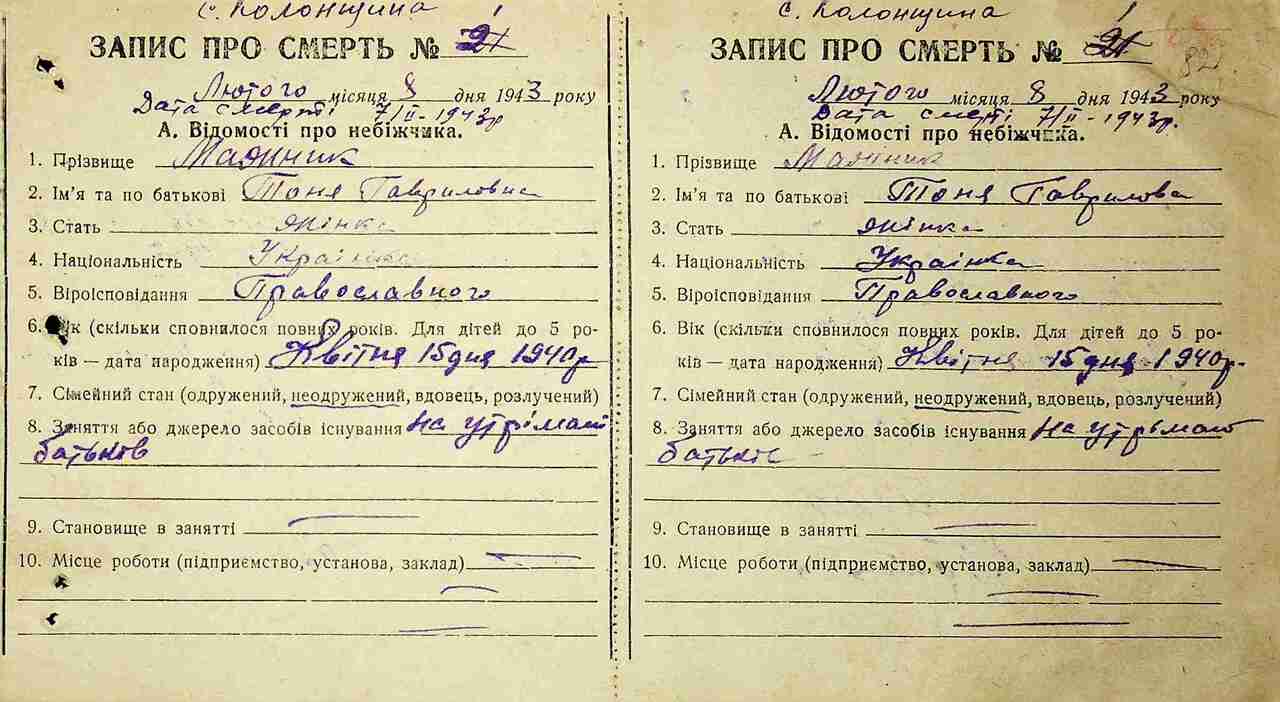 с. Колонщина
1
ЗАПИС ПРО СМЕРТЬ № 21
Лютого місяця 8 дня 1943 року
Дата смерті 7/II-1943р
А. Відомості про небіжчика.
1. Прізвище Малиник
2. Ім'я та по батькові Тоня Гавриловна
3. Стать жінка
4. Національність Українка
5. Віроісповідання Православного
6. Вік (скільки сповнилося повних років. Для дітей до 5 ро-
ків — дата народження) Квітня 15 дня 1940р
7. Сімейний стан (одружений, неодружений, вдовець, розлучений)
8. Заняття або джерело засобів існування на утрімані
батьків
9. Становище в занятті
10. Місце роботи (підприємство, установа, заклад)
с. Колонщина
1
ЗАПИС ПРО СМЕРТЬ № 21
82
Лютого місяця 8 дня 1943 року
Дата смерті 7/II-1943р.
А. Відомості про небіжчика.
1. Прізвище Малиник
2. Ім'я та по батькові Тоня Гаврилова
3. Стать жінка
4. Національність Українка
5. Віроісповідання Православного
6. Вік (скільки сповнилося повних років. Для дітей до 5 ро-
ків — дата народження) Квітня 15 дня 1940р.
7. Сімейний стан (одружений, неодружений, вдовець, розлучений)
8. Заняття або джерело засобів існування на утрімані
батьків
9. Становище в занятті
10. Місце роботи (підприємство, установа, заклад)